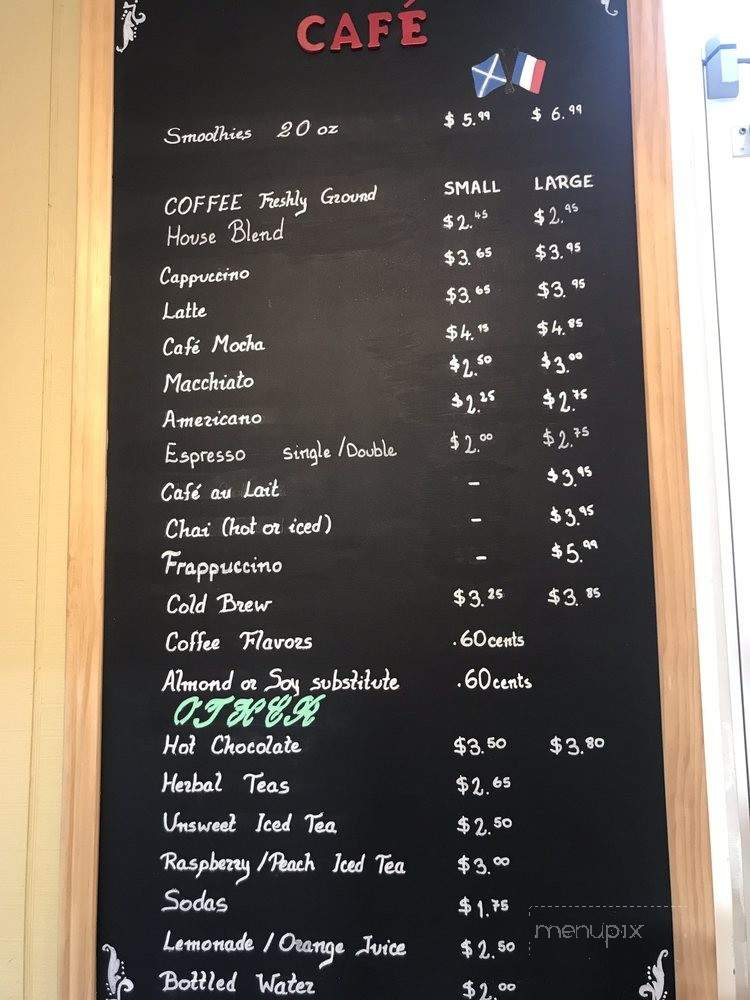 CAFÉ
Smoothies 20 oz $5.99 $6.99
SMALL LARGE
COFFEE Freshly Ground
House Blend $2.45 $2.95
Cappuccino $3.65 $3.95
Latte $3.65 $3.95
Café Mocha $4.15 $4.85
Macchiato $2.50 $3.00
Americano $2.25 $2.75
Espresso Single/Double $2.00 $2.75
Café au Lait - $3.95
Chai (hot or iced) - $3.95
Frappuccino - $5.99
Cold Brew $3.25 $3.85
Coffee Flavors .60cents
Almond or Soy substitute .60cents
OTHER
Hot Chocolate $3.50 $3.80
Herbal Teas $2.65
Unsweet Iced Tea $2.50
Raspberry/Peach Iced Tea $3.00
Sodas $1.75
Lemonade / Orange Juice $2.50
Bottled Water $2.00
menupix